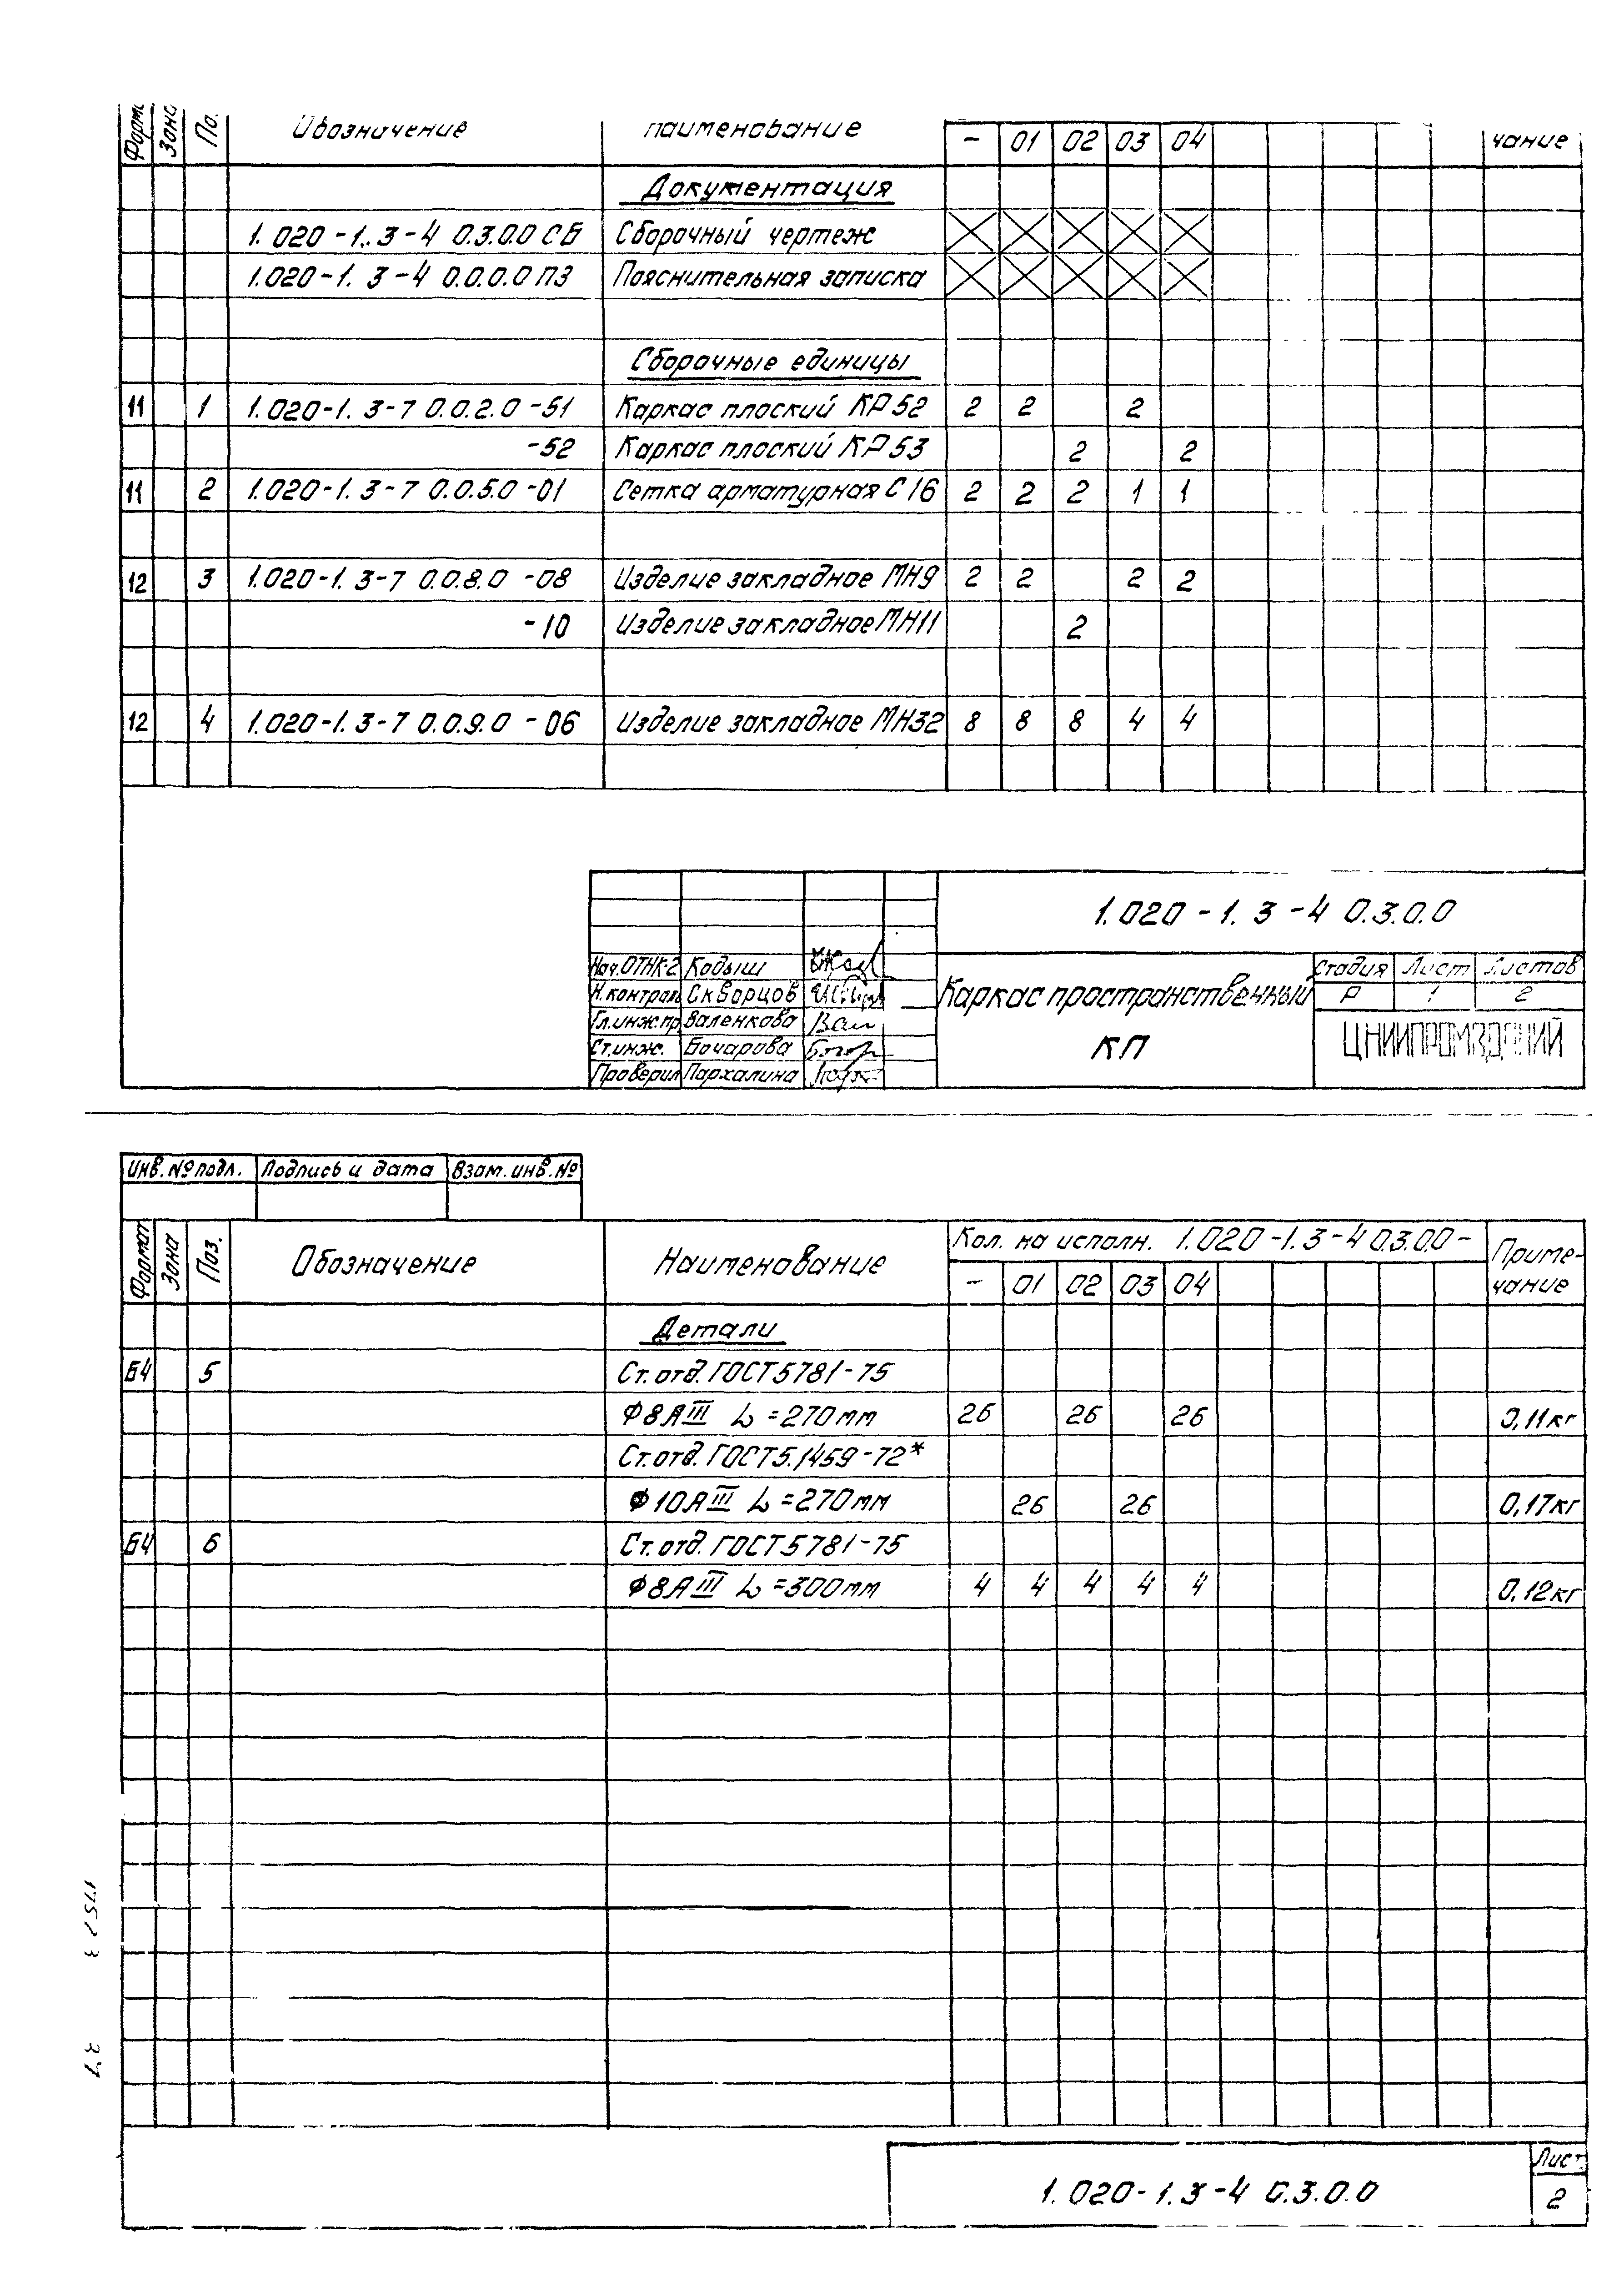 Зона По. Обозначение наименование - 01 02 03 04 чание
Документация
1.020-1.3-4 0.3.0.0 СБ Сборочный чертеж
1.020-1.3-4 0.0.0.0 ПЗ Пояснительная записка
Сборочные единицы
11 1 1.020-1.3-7 0.0.2.0 -51 Каркас плоский КР52 2 2 2
-52 Каркас плоский КР53 2 2
11 2 1.020-1.3-7 0.0.5.0 -01 Сетка арматурная С16 2 2 2 1 1
12 3 1.020-1.3-7 0.0.8.0 -08 Изделие закладное МН9 2 2 2 2
-10 Изделие закладное МН11 2
12 4 1.020-1.3-7 0.0.9.0 -06 Изделие закладное МН32 8 8 8 4 4
1.020-1.3-4 0.3.0.0
Нач.ОТНК-2 Кодыш
Н.контрол Скворцов
Гл.инж.пр. Валенкова
Ст.инж. Бочарова
Проверил Пархалина
Каркас пространственный
КП
Стадия Лист Листов
Р 1 2
ЦНИИПРОМЗДАНИЙ
Инв.№подл. Подпись и дата Взам.инв.№
Формат Зона Поз. Обозначение Наименование Кол. на исполн. 1.020-1.3-4 0.3.0.0- Приме-
- 01 02 03 04 чание
Детали
Б4 5 Ст.отд.ГОСТ5781-75
Ф8АIII L=270мм 26 26 26 0,11кг
Ст.отд.ГОСТ5.1459-72*
Ф10АIII L=270мм 26 26 0,17кг
Б4 6 Ст.отд.ГОСТ5781-75
Ф8АIII L=300мм 4 4 4 4 4 0,12кг
1.020-1.3-4 0.3.0.0
Лист
2